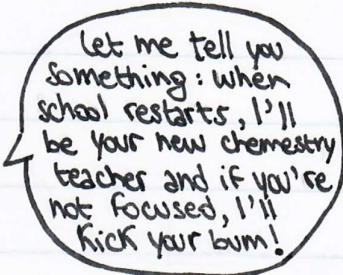 Let me tell you
something: when
school restarts, I'll
be your new chemestry
teacher and if you're
not focused, I'll
kick your bum!